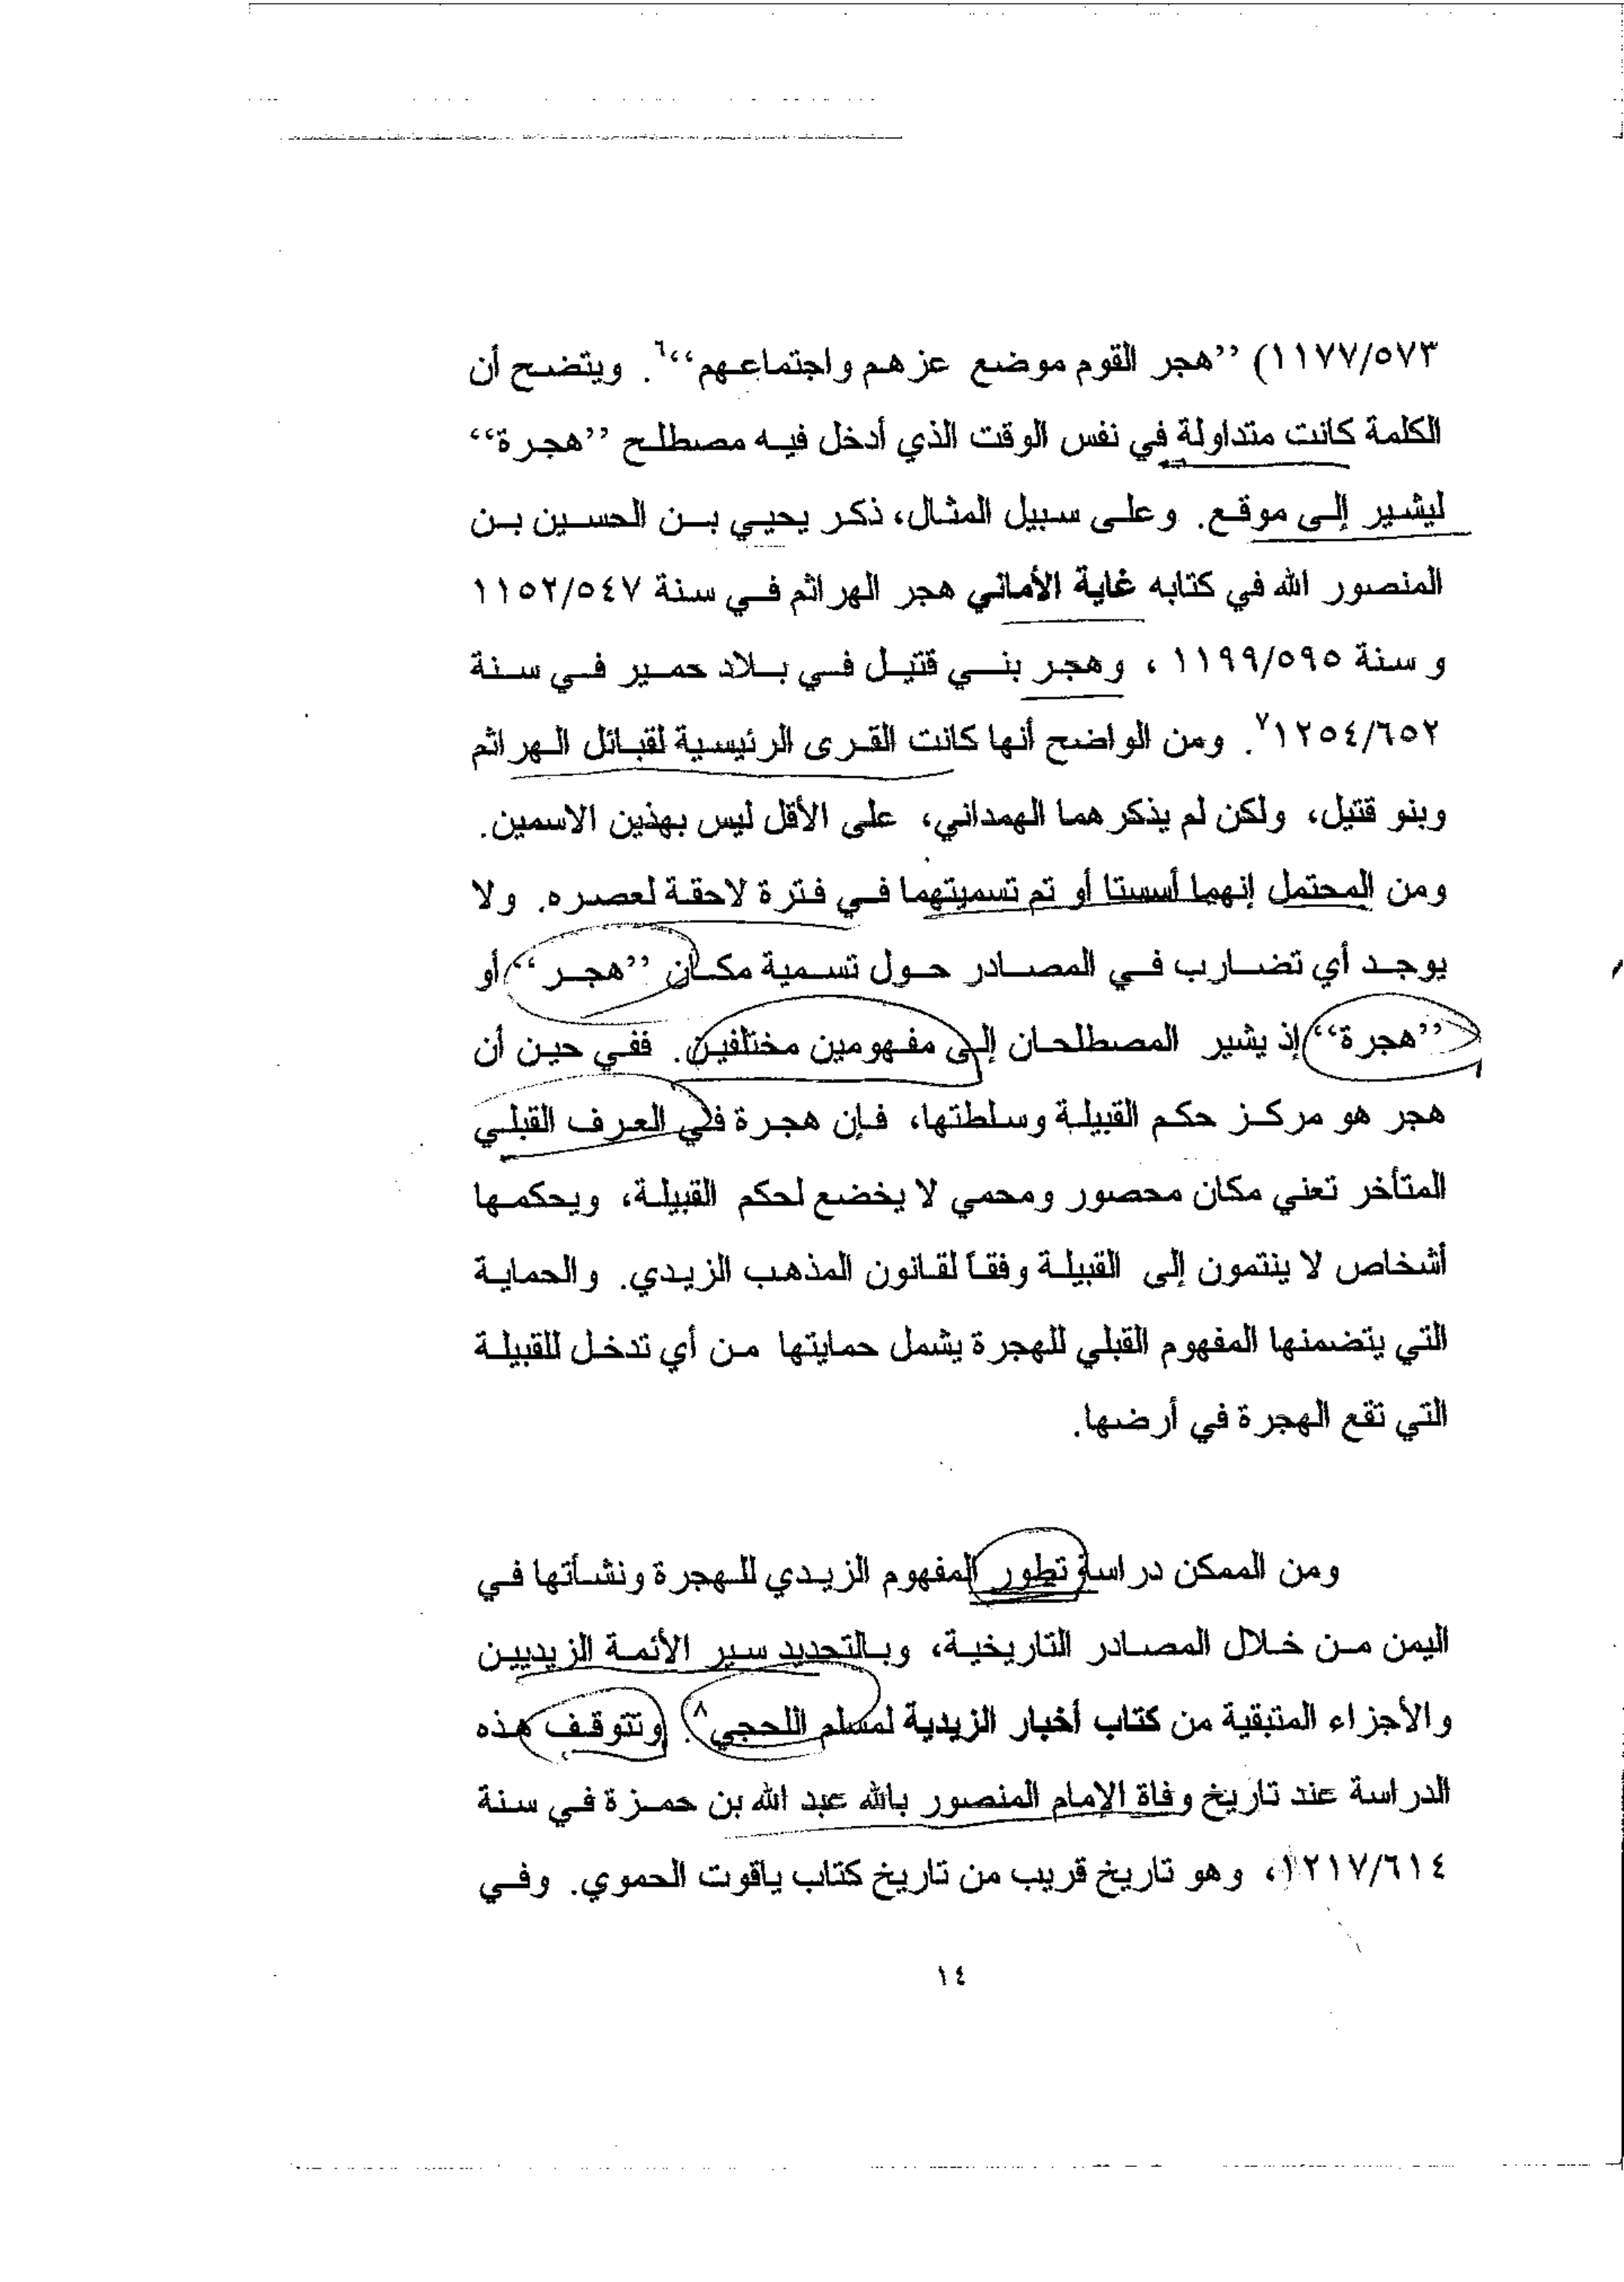 ١١٧٧/٥٧٣) ”هجر القوم موضع عزهم واجتماعهم“٦. ويتضح أن
الكلمة كانت متداولة في نفس الوقت الذي أدخل فيه مصطلح ”هجرة“
ليشير إلى موقع. وعلى سبيل المثال، ذكر يحيي بن الحسين بن
المنصور الله في كتابه غاية الأماني هجر الهراثم في سنة ١١٥٢/٥٤٧
و سنة ١١٩٩/٥٩٥ ، وهجر بني قتيل في بلاد حمير في سنة
١٢٥٤/٦٥٢٧. ومن الواضح أنها كانت القرى الرئيسية لقبائل الهراثم
وبنو قتيل، ولكن لم يذكرهما الهمداني، على الأقل ليس بهذين الاسمين.
ومن المحتمل إنهما أسستا أو تم تسميتهما في فترة لاحقة لعصره. ولا
يوجد أي تضارب في المصادر حول تسمية مكان ”هجر“ أو
”هجرة“ إذ يشير المصطلحان إلى مفهومين مختلفين. ففي حين أن
هجر هو مركز حكم القبيلة وسلطتها، فإن هجرة في العرف القبلي
المتأخر تعني مكان محصور ومحمي لا يخضع لحكم القبيلة، ويحكمها
أشخاص لا ينتمون إلى القبيلة وفقاً لقانون المذهب الزيدي. والحماية
التي يتضمنها المفهوم القبلي للهجرة يشمل حمايتها من أي تدخل للقبيلة
التي تقع الهجرة في أرضها.
ومن الممكن دراسة تطور المفهوم الزيدي للهجرة ونشأتها في
اليمن من خلال المصادر التاريخية، وبالتحديد سير الأئمة الزيديين
والأجزاء المتبقية من كتاب أخبار الزيدية لمسلم اللحجي٨. وتتوقف هذه
الدراسة عند تاريخ وفاة الإمام المنصور بالله عبد الله بن حمزة في سنة
١٢١٧/٦١٤، وهو تاريخ قريب من تاريخ كتاب ياقوت الحموي. وفي
١٤